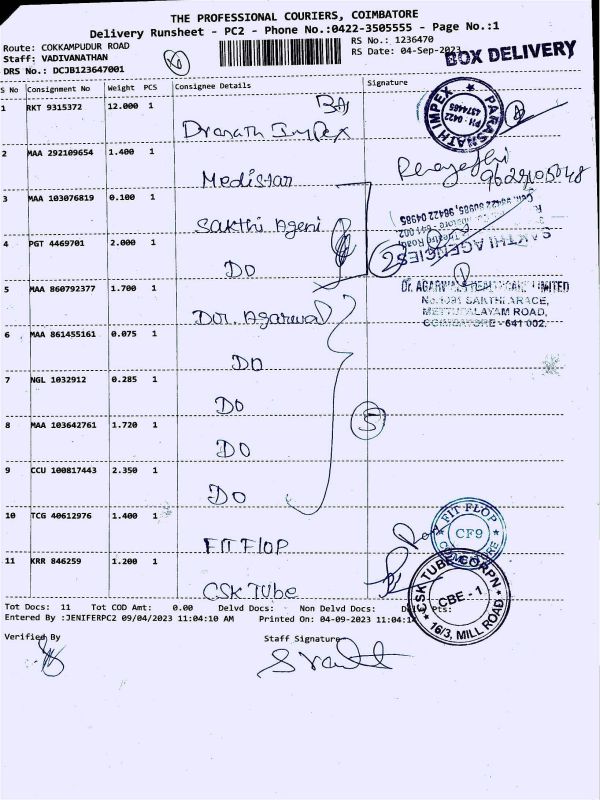 THE PROFESSIONAL COURIERS, COIMBATORE
Delivery Runsheet - PC2 - Phone No.:0422-3505555 - Page No.:1
Route: COKKAMPUDUR ROAD
Staff: VADIVANATHAN
DRS No.: DCJB123647001
RS No.: 1236470
RS Date: 04-Sep-2023
BOX DELIVERY
S No Consignment No Weight PCS Consignee Details Signature
1 RKT 9315372 12.000 1
Impex
PARASNATH IMPEX
PH : 0422
4374485
2 MAA 292109654 1.400 1 Medistar
3 MAA 103076819 0.100 1 Sakthi Ageni
SAKTHI AGENCIES
4 PGT 4469701 2.000 1 DO
2
5 MAA 860792377 1.700 1 Dr. Agarwal
Dr. AGARWAL'S HEALTHCARE LIMITED
No.1091 SAKTHI ARACE,
METTUPALAYAM ROAD,
COIMBATORE - 641 002.
6 MAA 861455161 0.075 1 DO
7 NGL 1032912 0.285 1 DO
5
8 MAA 103642761 1.720 1 DO
9 CCU 100817443 2.350 1 DO
10 TCG 40612976 1.400 1 FIT FLOP
FIT FLOP
CF9
COIMBATORE
11 KRR 846259 1.200 1 CSK TUBE
CSK TUBE CORPN
CBE - 1
16/3, MILL ROAD
Tot Docs: 11 Tot COD Amt: 0.00 Delvd Docs: Non Delvd Docs: Pts:
Entered By :JENIFERPC2 09/04/2023 11:04:10 AM Printed On: 04-09-2023 11:04:1
Verified By Staff Signature